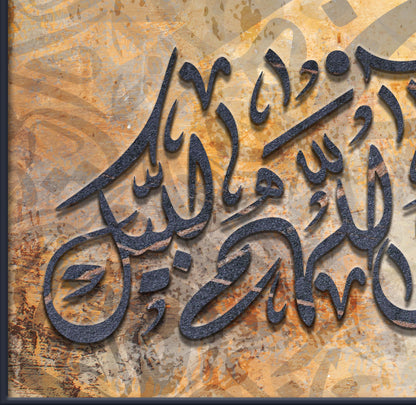 اللهم لبيك